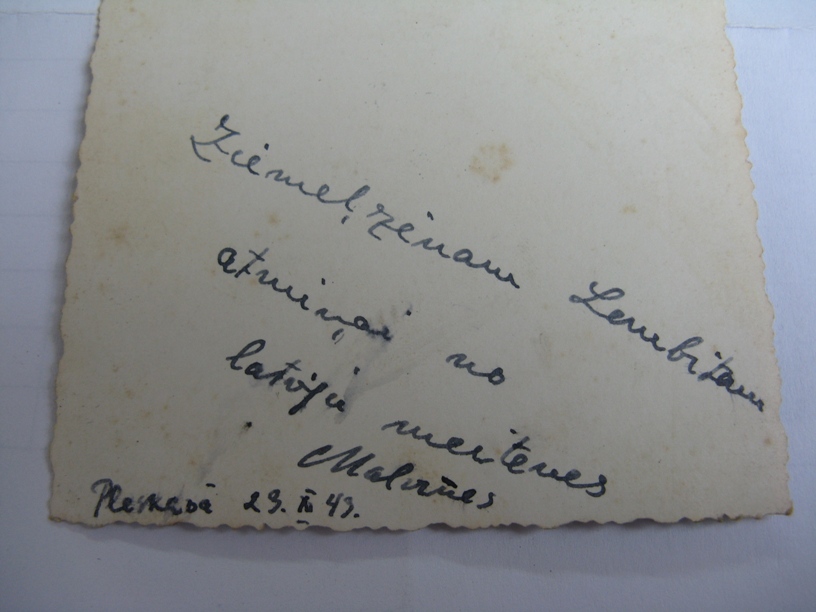 Ziemeļzēnam Lembitam
atmiņai no
latvju meitenes
Malvīnes
Pleskavā 29. IV 43.